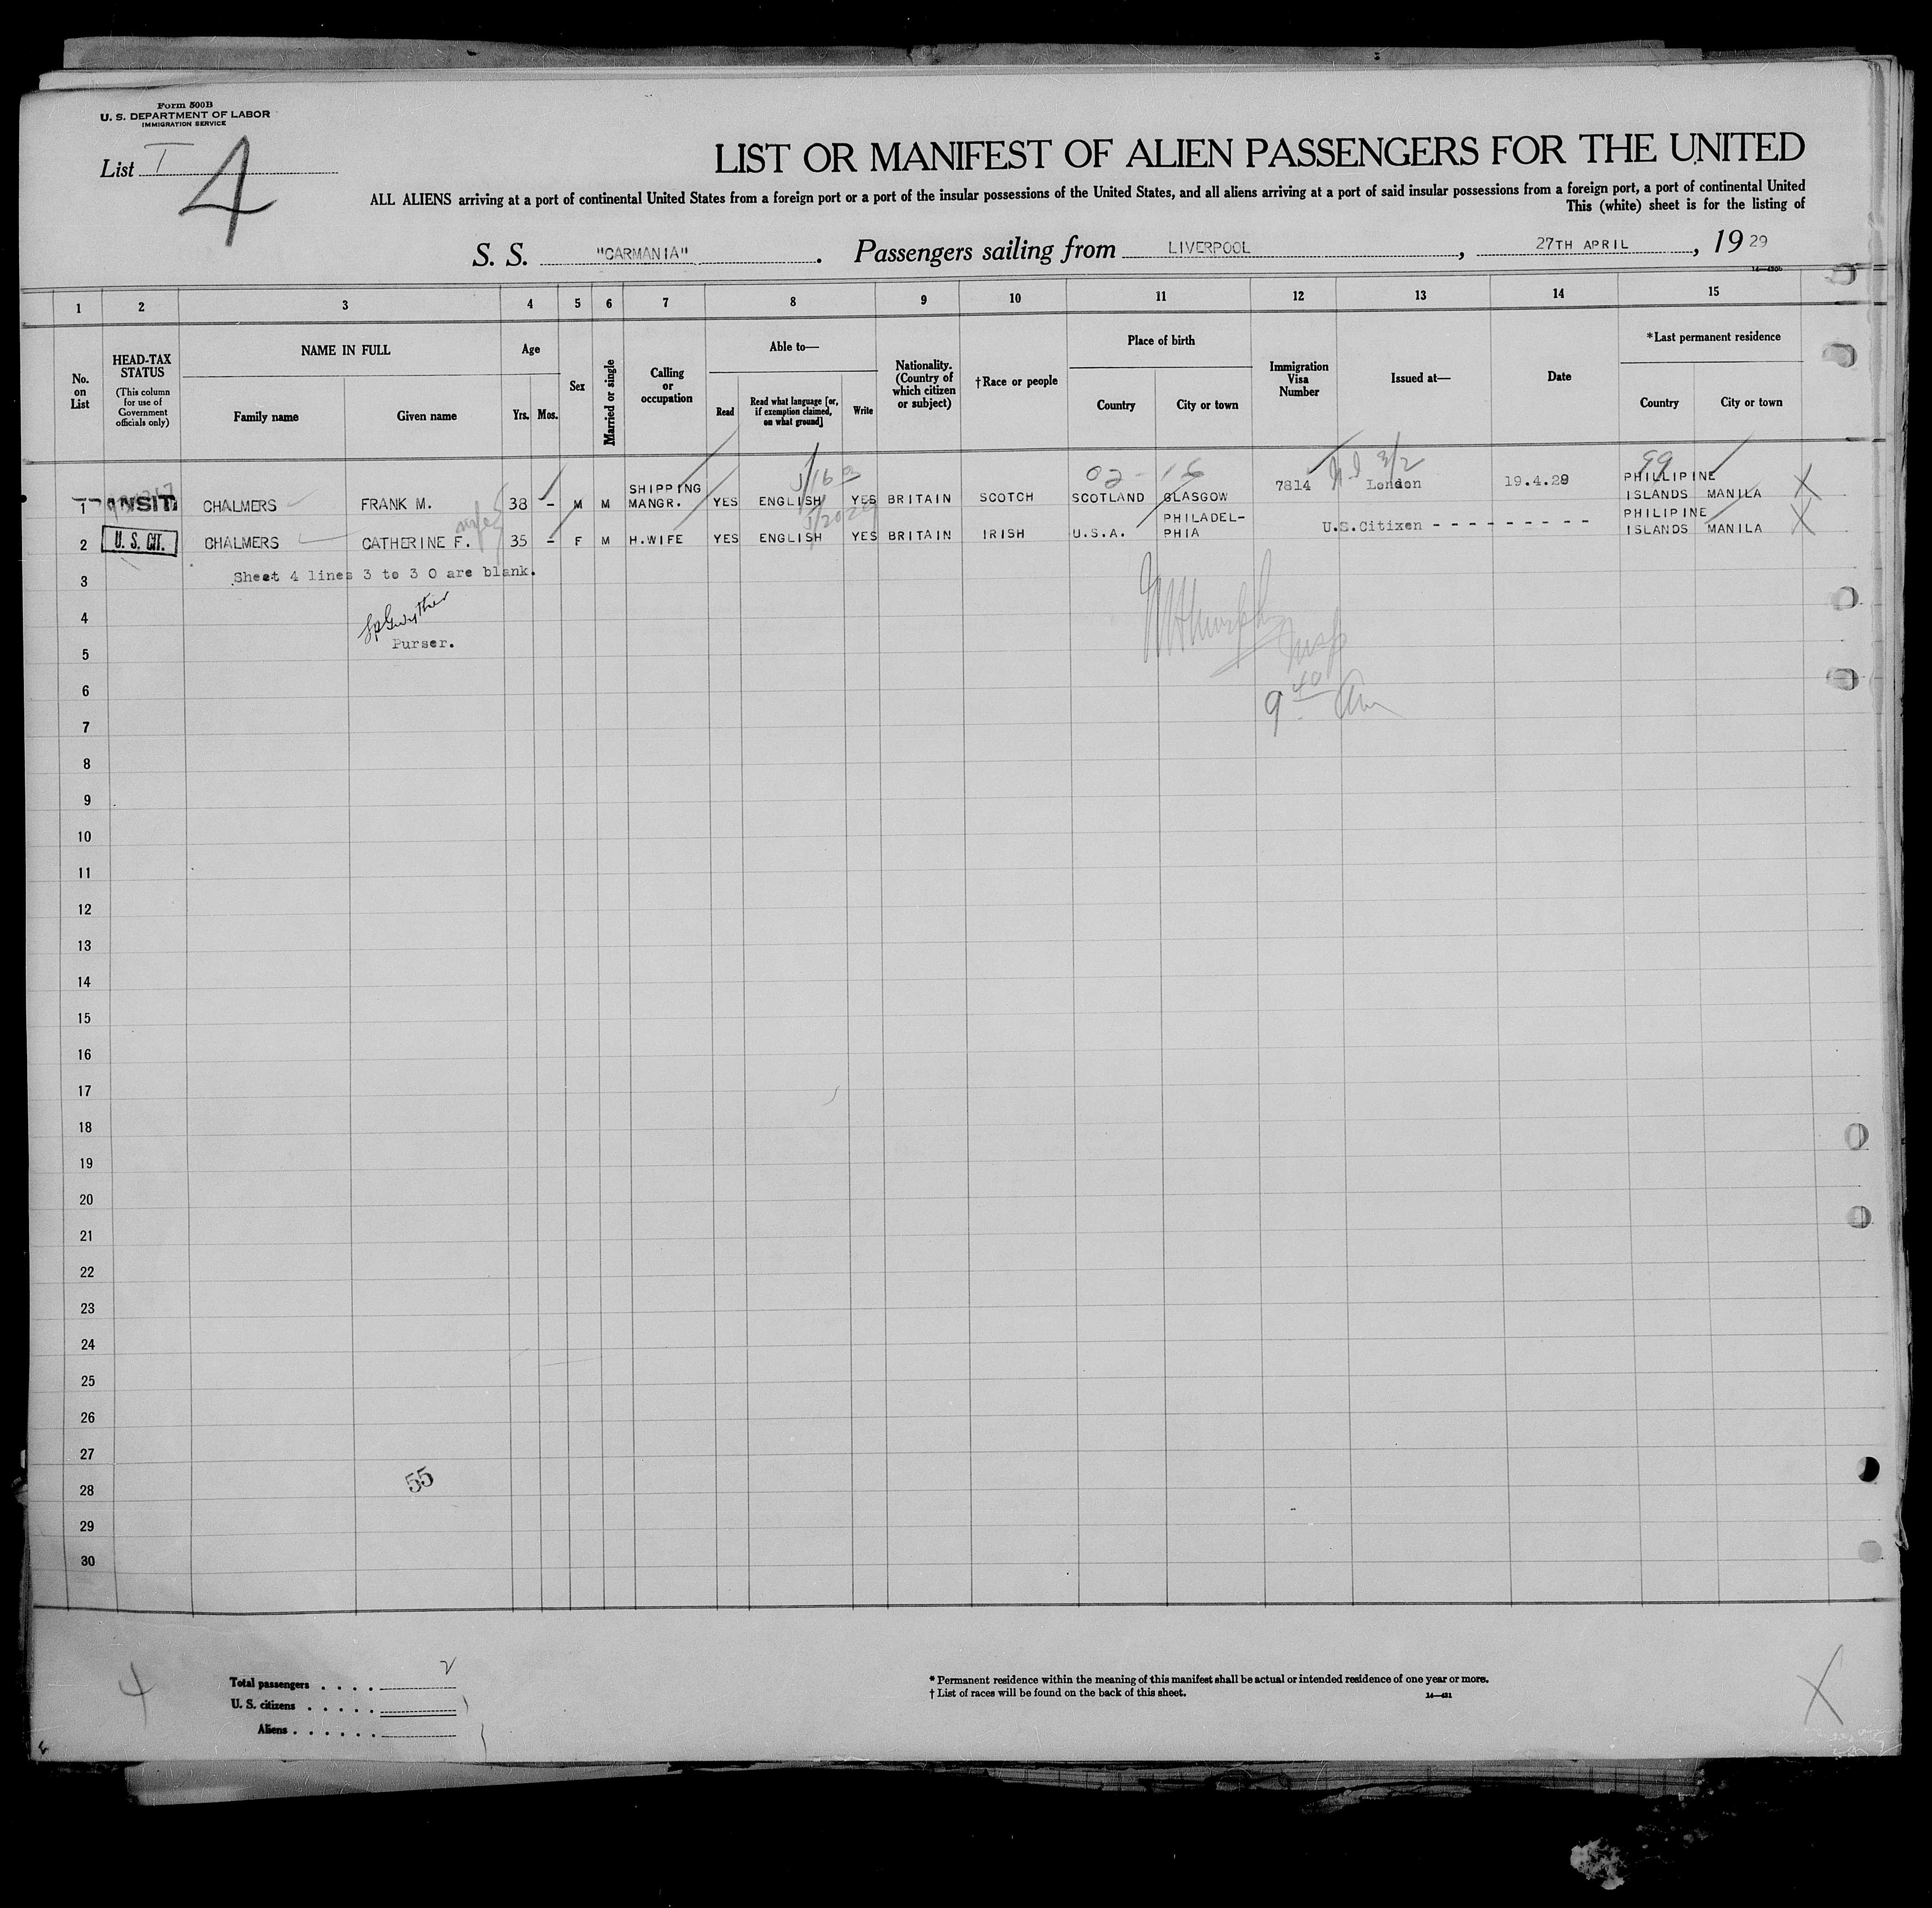 Form 500B
U. S. DEPARTMENT OF LABOR
IMMIGRATION SERVICE
List I
4
LIST OR MANIFEST OF ALIEN PASSENGERS FOR THE UNITED
ALL ALIENS arriving at a port of continental United States from a foreign port or a port of the insular possessions of the United States, and all aliens arriving at a port of said insular possessions from a foreign port, a port of continental United
This (white) sheet is for the listing of
S. S. "CARMANIA". Passengers sailing from LIVERPOOL, 27TH APRIL, 19 29
1 2 3 4 5 6 7 8 9 10 11 12 13 14 15
No. on List
HEAD-TAX STATUS
(This column for use of Government officials only)
NAME IN FULL
Family name
Given name
Age
Yrs.
Mos.
Sex
Married or single
Calling or occupation
Able to—
Read
Read what language [or, if exemption claimed, on what ground]
Write
Nationality. (Country of which citizen or subject)
†Race or people
Place of birth
Country
City or town
Immigration Visa Number
Issued at—
Date
*Last permanent residence
Country
City or town
02 - 16 99
1 TRANSIT CHALMERS FRANK M. 38 - M M SHIPPING MANGR. YES ENGLISH YES BRITAIN SCOTCH SCOTLAND GLASGOW 7814 London 19.4.29 PHILLIPINE ISLANDS MANILA X
wife
2 U. S. CIT. CHALMERS CATHERINE F. 35 - F M H.WIFE YES ENGLISH YES BRITAIN IRISH U.S.A. PHILADEL-PHIA U.S.Citizen - - - - - - - - - PHILIPINE ISLANDS MANILA X
3 Sheet 4 lines 3 to 3 0 are blank.
4
5 Purser.
6 9 40 am
7
8
9
10
11
12
13
14
15
16
17
18
19
20
21
22
23
24
25
26
27
28 55
29
30
4
Total passengers . . . . 2
U. S. citizens . . . . .
Aliens . . . . . .
* Permanent residence within the meaning of this manifest shall be actual or intended residence of one year or more.
† List of races will be found on the back of this sheet.
14—431
X